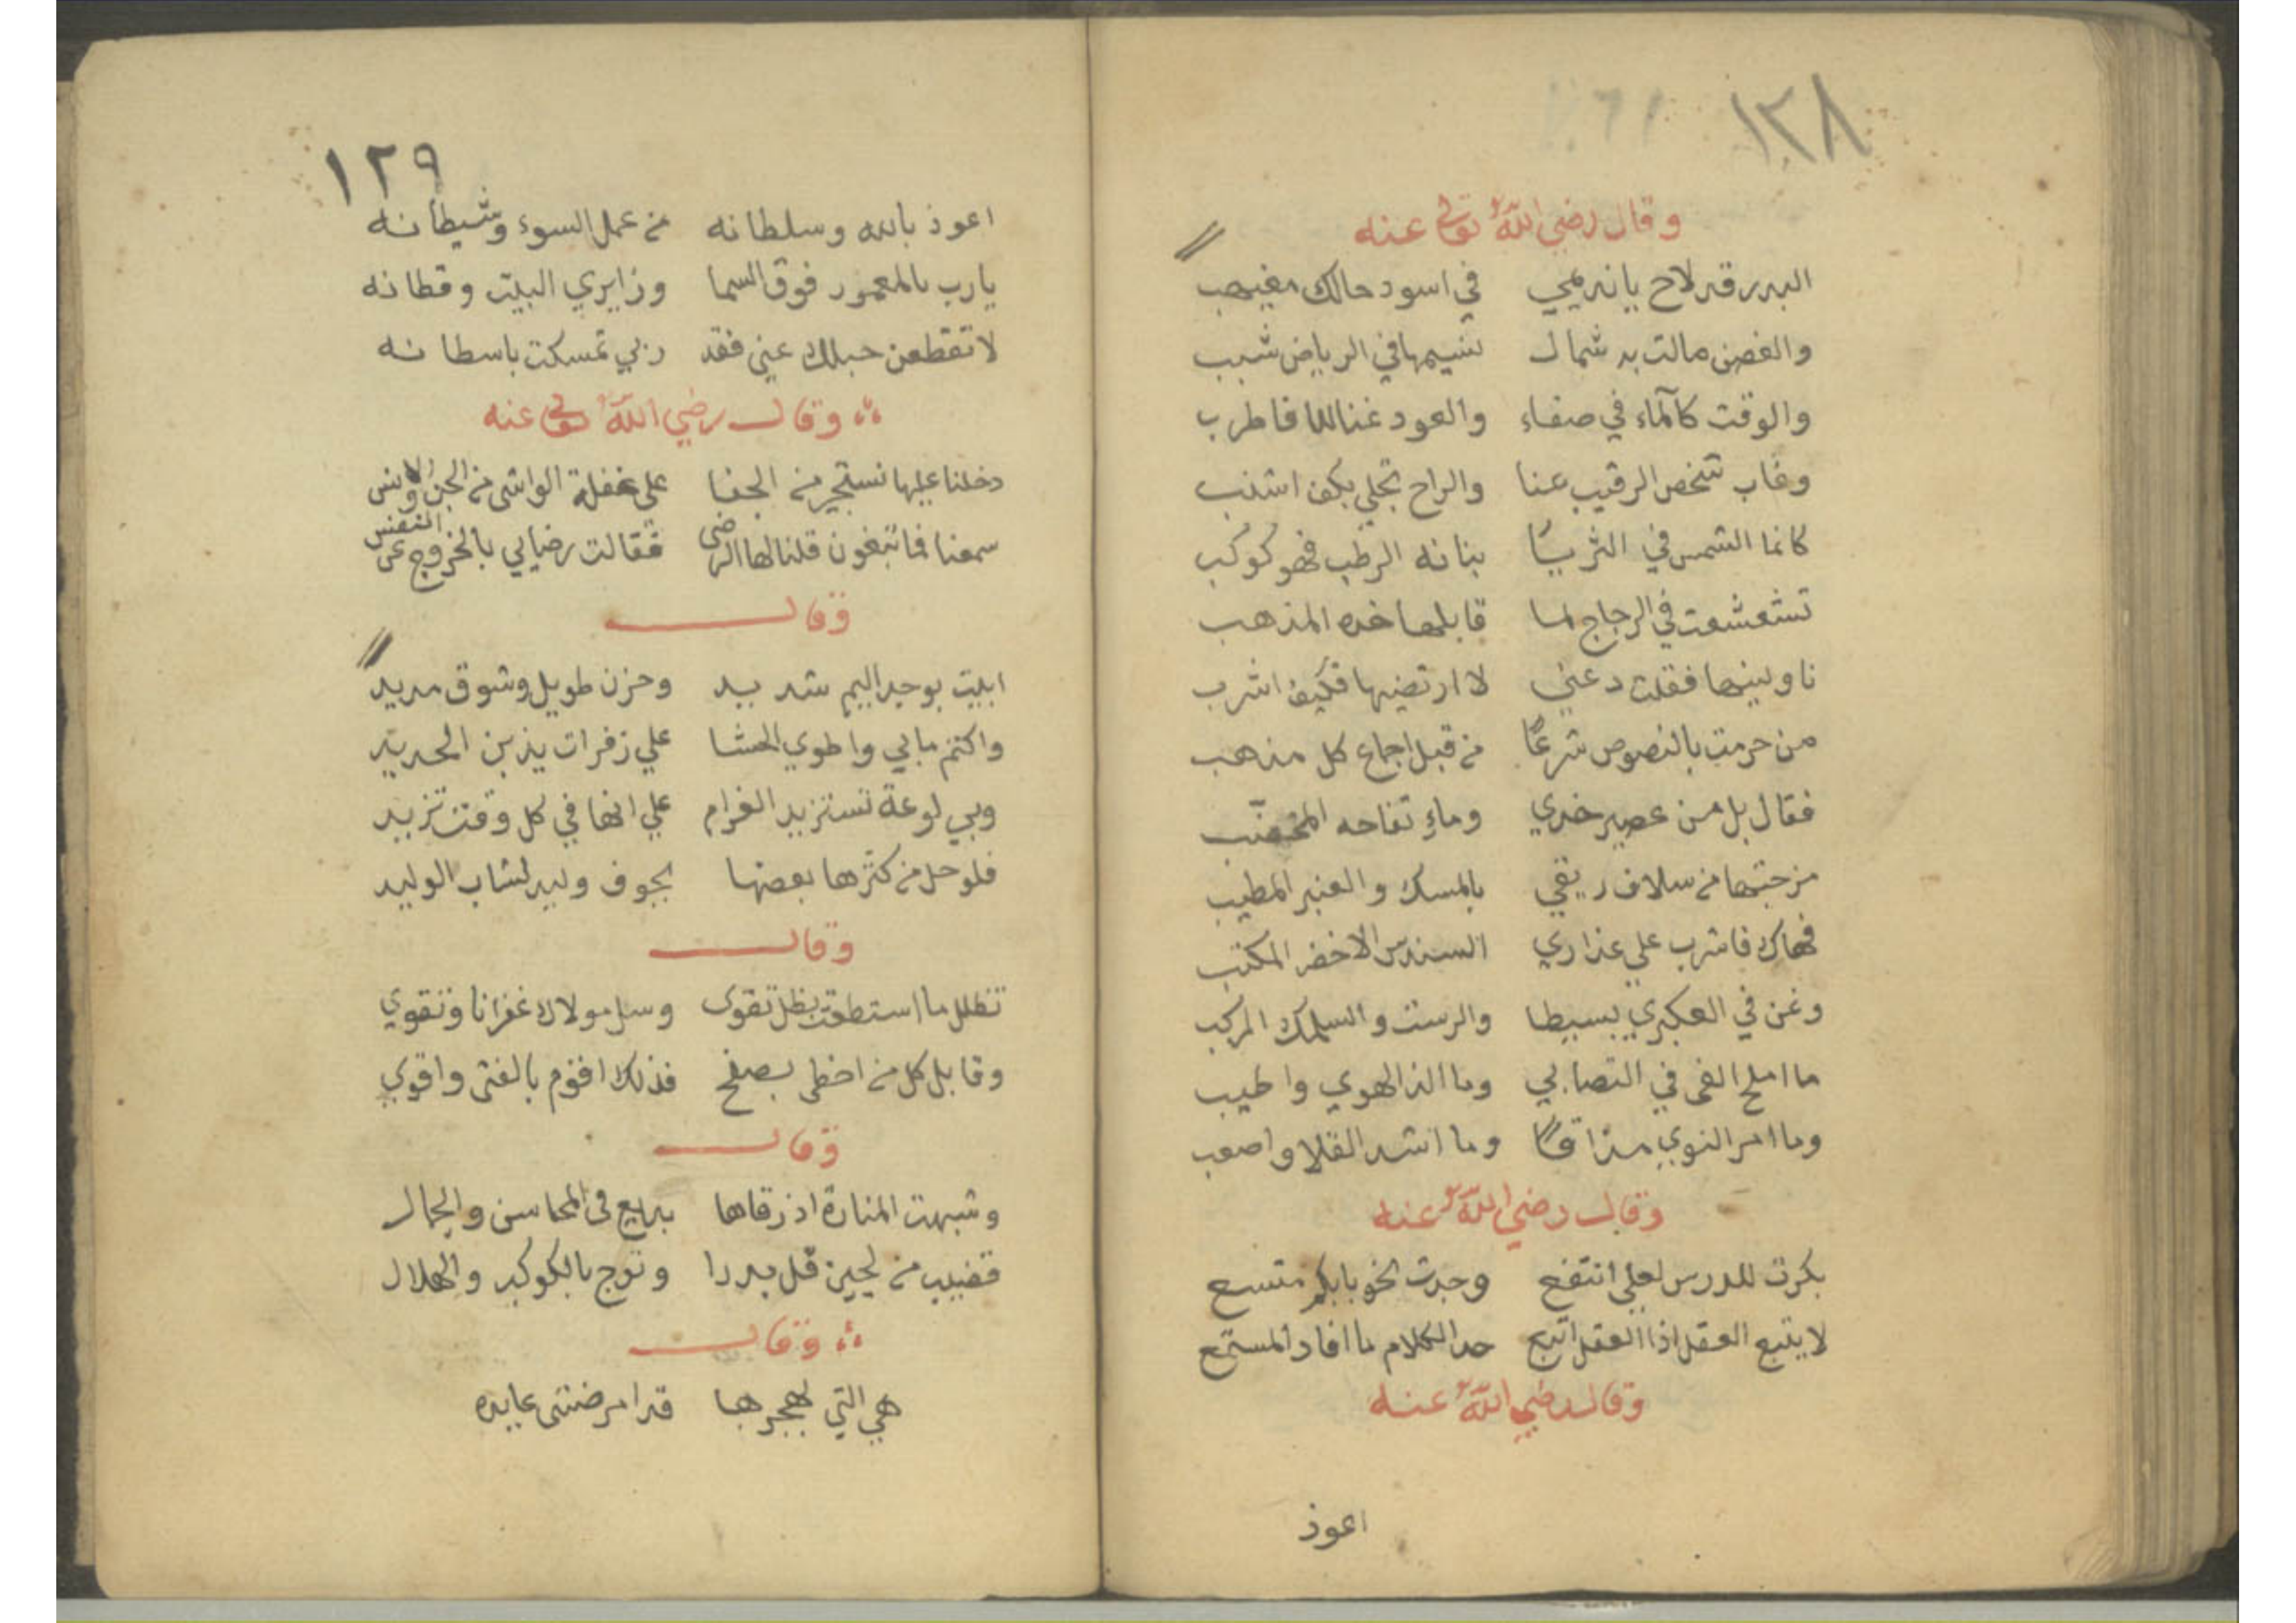 ١٢٨
وقال رضي الله تعالى عنه
البدر قد لاح يا نديمي في اسود حالك مغيهب
والغصن مالت به شمال نسيمها في الرياض شبب
والوقت كالماء في صفاء والعود غنا لنا فاطرب
وغاب شخص الرقيب عنا والراح تجلي بكف اشنب
كانما الشمس في الثريا بنانه الرطب فهو كوكب
تشعشعت في الزجاج لما قابلها خده المذهب
ناولنيها فقلت دعني لا ارتضيها فكيف اشرب
من حرمت بالنصوص شرعًا من قبل اجماع كل مذهب
فقال بل من عصير خدي وماء تفاحه المخضب
مزجتها من سلاف ريقي بالمسك والعنبر المطيب
فهاك فاشرب علي عذاري السندس الاخضر المكتب
وغن في العكبري بسيطا والرست والسلمك المركب
ما املح الغي في التصابي وما الذ الهوي واطيب
وما امر النوي مذاقًا وما اشد القلا واصعب
وقال رضي الله عنه
بكرت للدرس لعلي انتفع وجدت نحو بابكم متسع
لا يتبع العقل اذا العقل اتبع حد الكلام ما افاد المستمع
وقال رضي الله عنه
اعوذ
١٢٩
اعوذ بالله وسلطانه من عمل السوء وشيطانه
يارب بالمعمور فوق السما وزايري البيت وقطانه
لا تقطعن حبلك عني فقد ربي تمسكت باسطانه
وقال رضي الله تعالى عنه
دخلنا عليها نستجير من الجفا على غفلة الواشي من الجن والانس
سمعنا فما تبغون قلنا لها الرضى فقالت رضايي بالخروج عن النفس
وقال
ابيت بوجد اليم شديد وحزن طويل وشوق مديد
واكتم ما بي واطوي الحشا علي زفرات يذبن الحديد
وبي لوعة تستزيد الغرام علي انها في كل وقت تزيد
فلو حل من كثرها بعضها بجوف وليد لشاب الوليد
وقال
تظلل ما استطعت بظل تقوى وسل مولاك غفرانا وتقوي
وقابل كل من اخطى بصفح فذلك اقوم بالفتى واقوي
وقال
وشبهت المنارة اذ رقاها بديع في المحاسن والجمال
قضيب من لجين قل بدرا وتوج بالكوكب والهلال
وقال
هي التي بهجرها قد امرضتني عايده